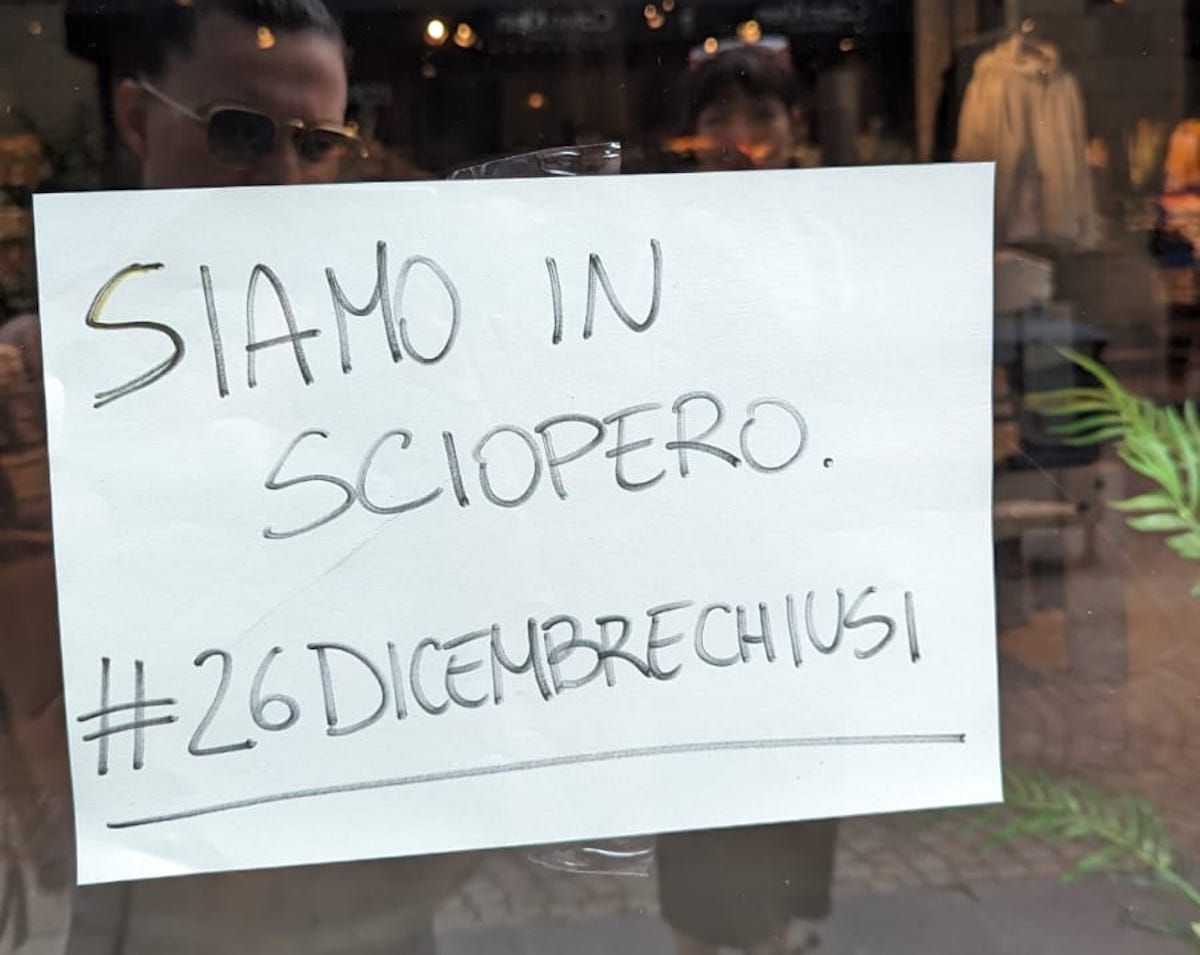 SIAMO IN
SCIOPERO.
#26DICEMBRECHIUSI